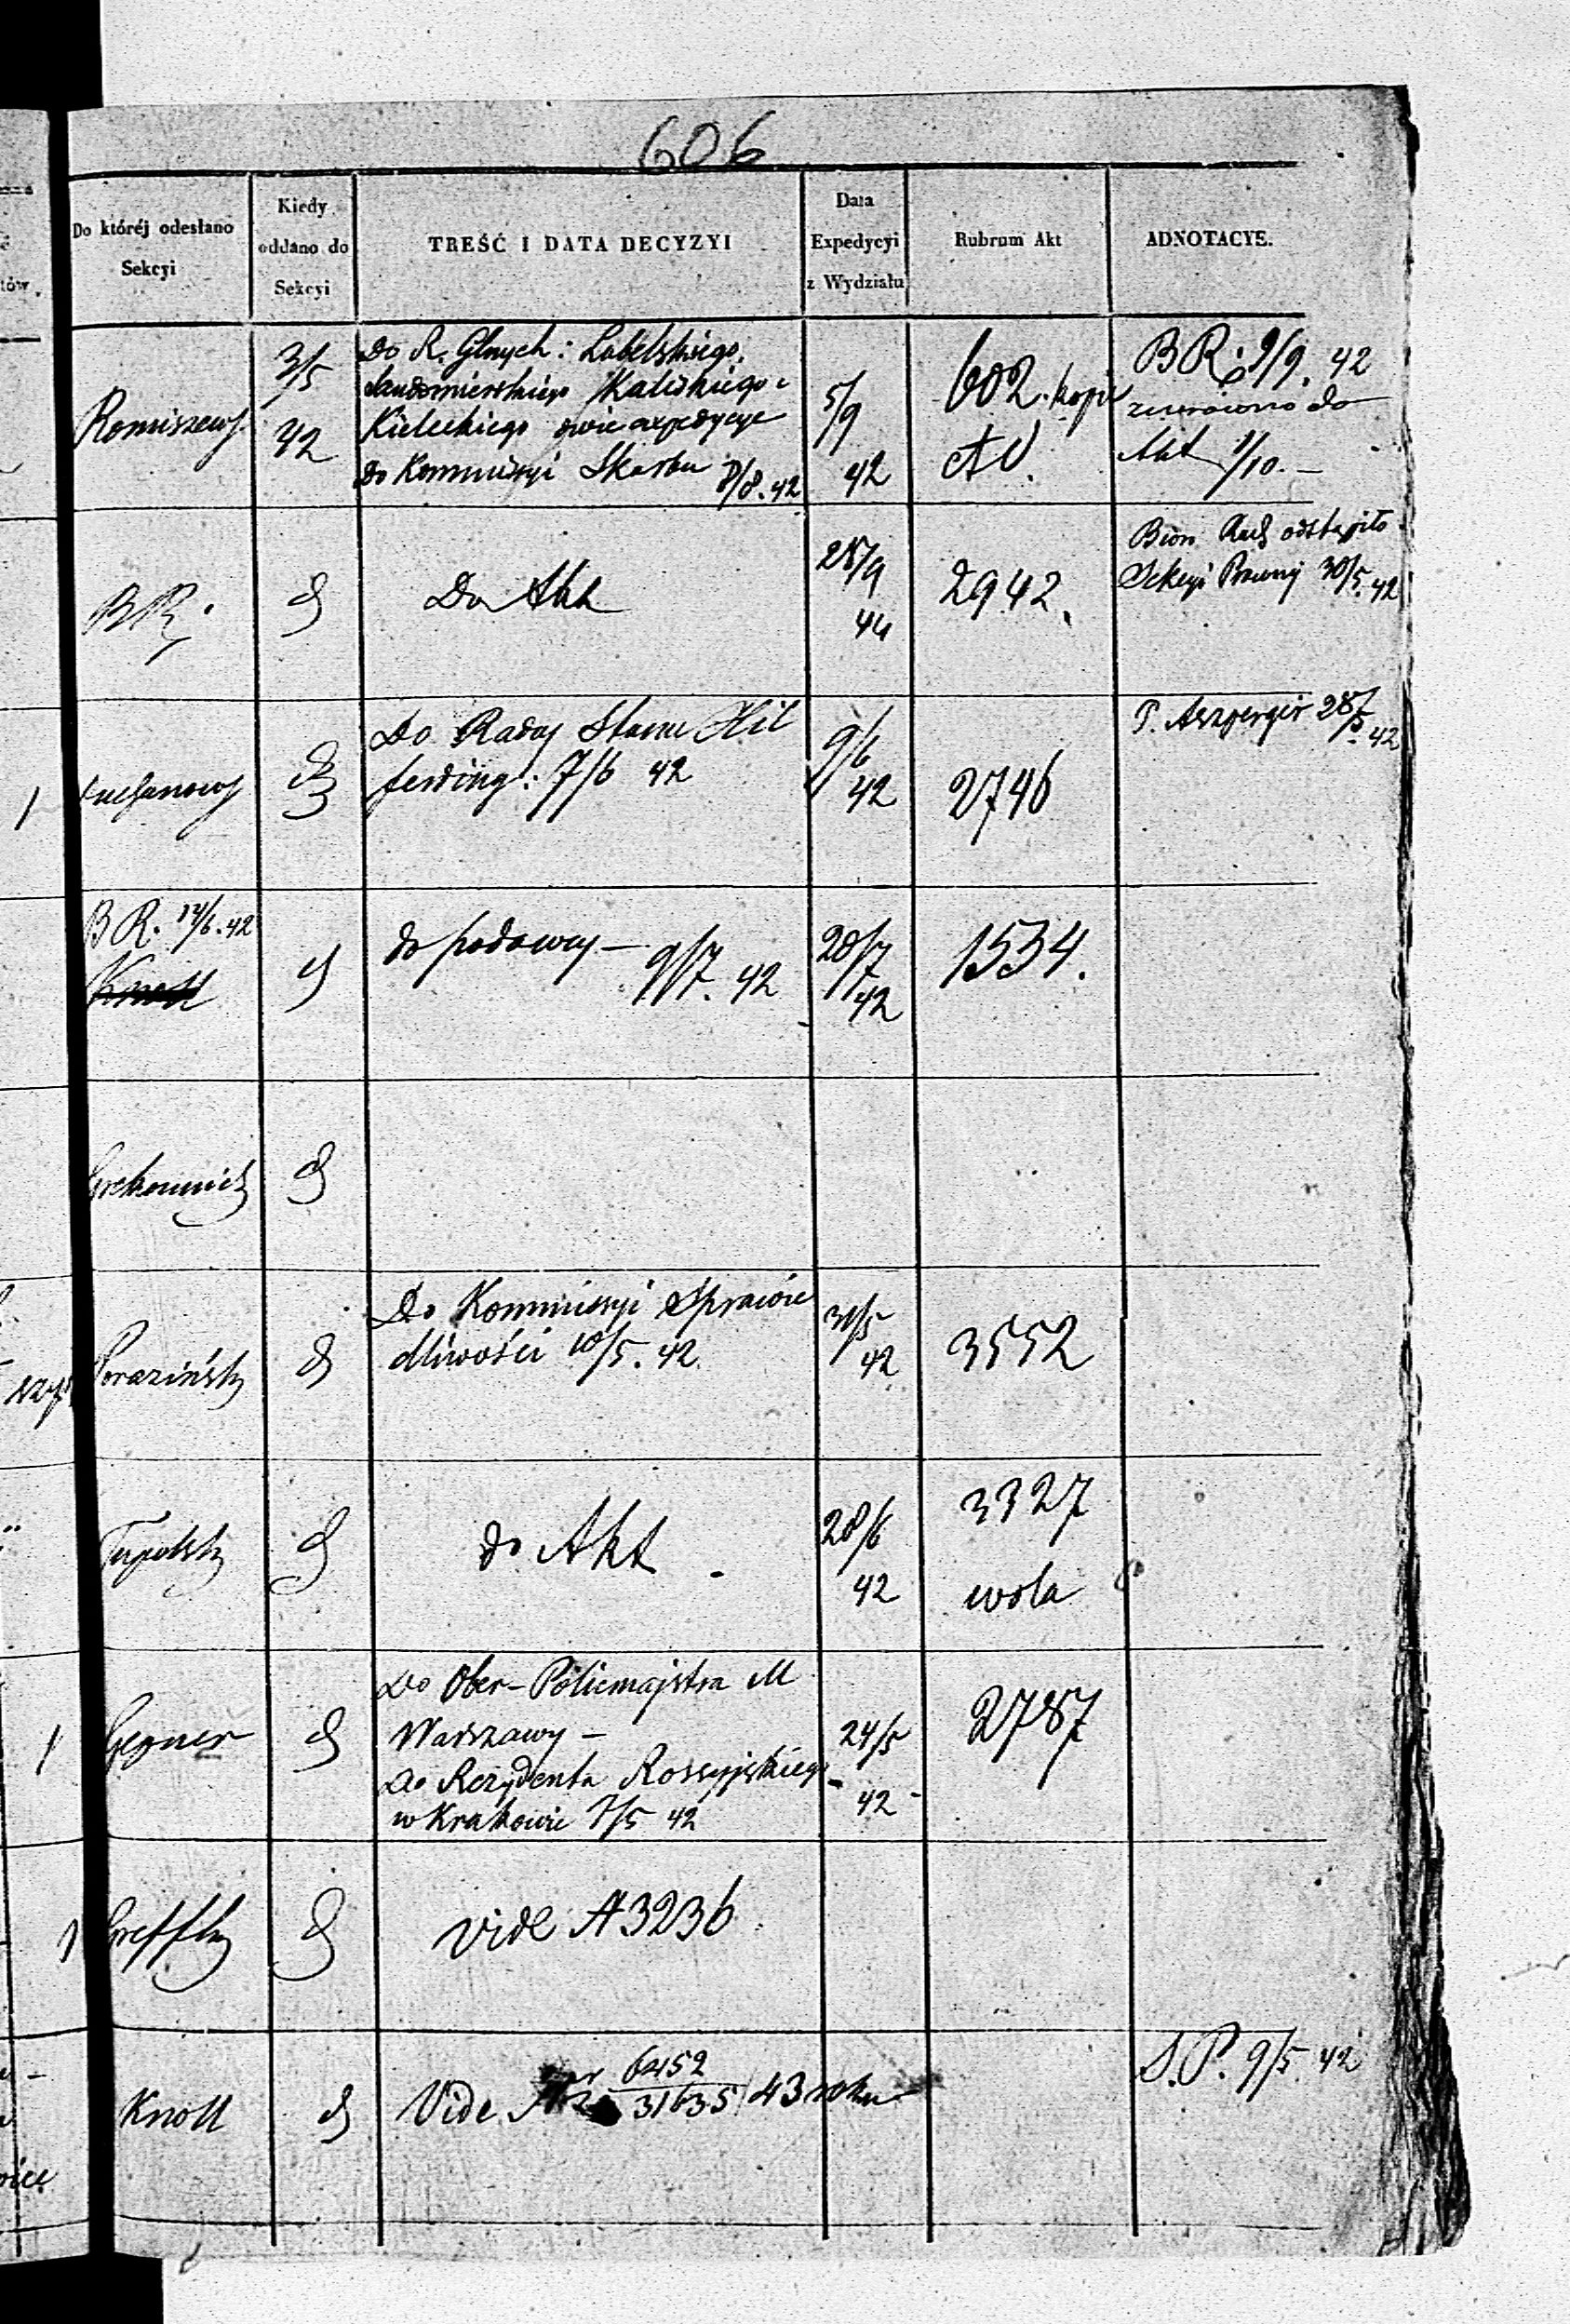 606
Do któréj odesłano
Sekcyi
Kiedy
oddano do
Sekcyi
TREŚĆ I DATA DECYZYI
Data
Expedycyi
z Wydziału
Rubrum Akt
ADNOTACYE.
3/5
42
Do R. Glnych: Lubelskiego,
Sandomierskiego Kaliskiego i
Kieleckiego dwie expedycye
do Kommissyi Skarbu 8/8. 42
5/9
42
602. kopie
BR. 9/9. 42
zwrócono do
Akt 1/10. —
BR.
Do Akt
28/9
44
2942.
odstąpiło
Sekcyi 30/5. 42
Do Rady Stanu Hil
ferding: 7/6 42
9/6
42
2746
P. Aszperger 28/5 42
BR. 14/6. 42
Knoll
do podawcy — 9/7. 42
20/7
42
1534.
Do Kommissyi Sprawie
dliwości 10/5. 42
31/5
42
3552
do Akt
28/6
42
3327
wola
Gegner
Do Ober-Policmajstra M
Warszawy —
Do Rezydenta Rossyjskiego
w Krakowie 7/5 42
24/5
42
2787
vide A 3236
Knoll
Vide 6452
31635 43 roku
S.P. 9/5. 42